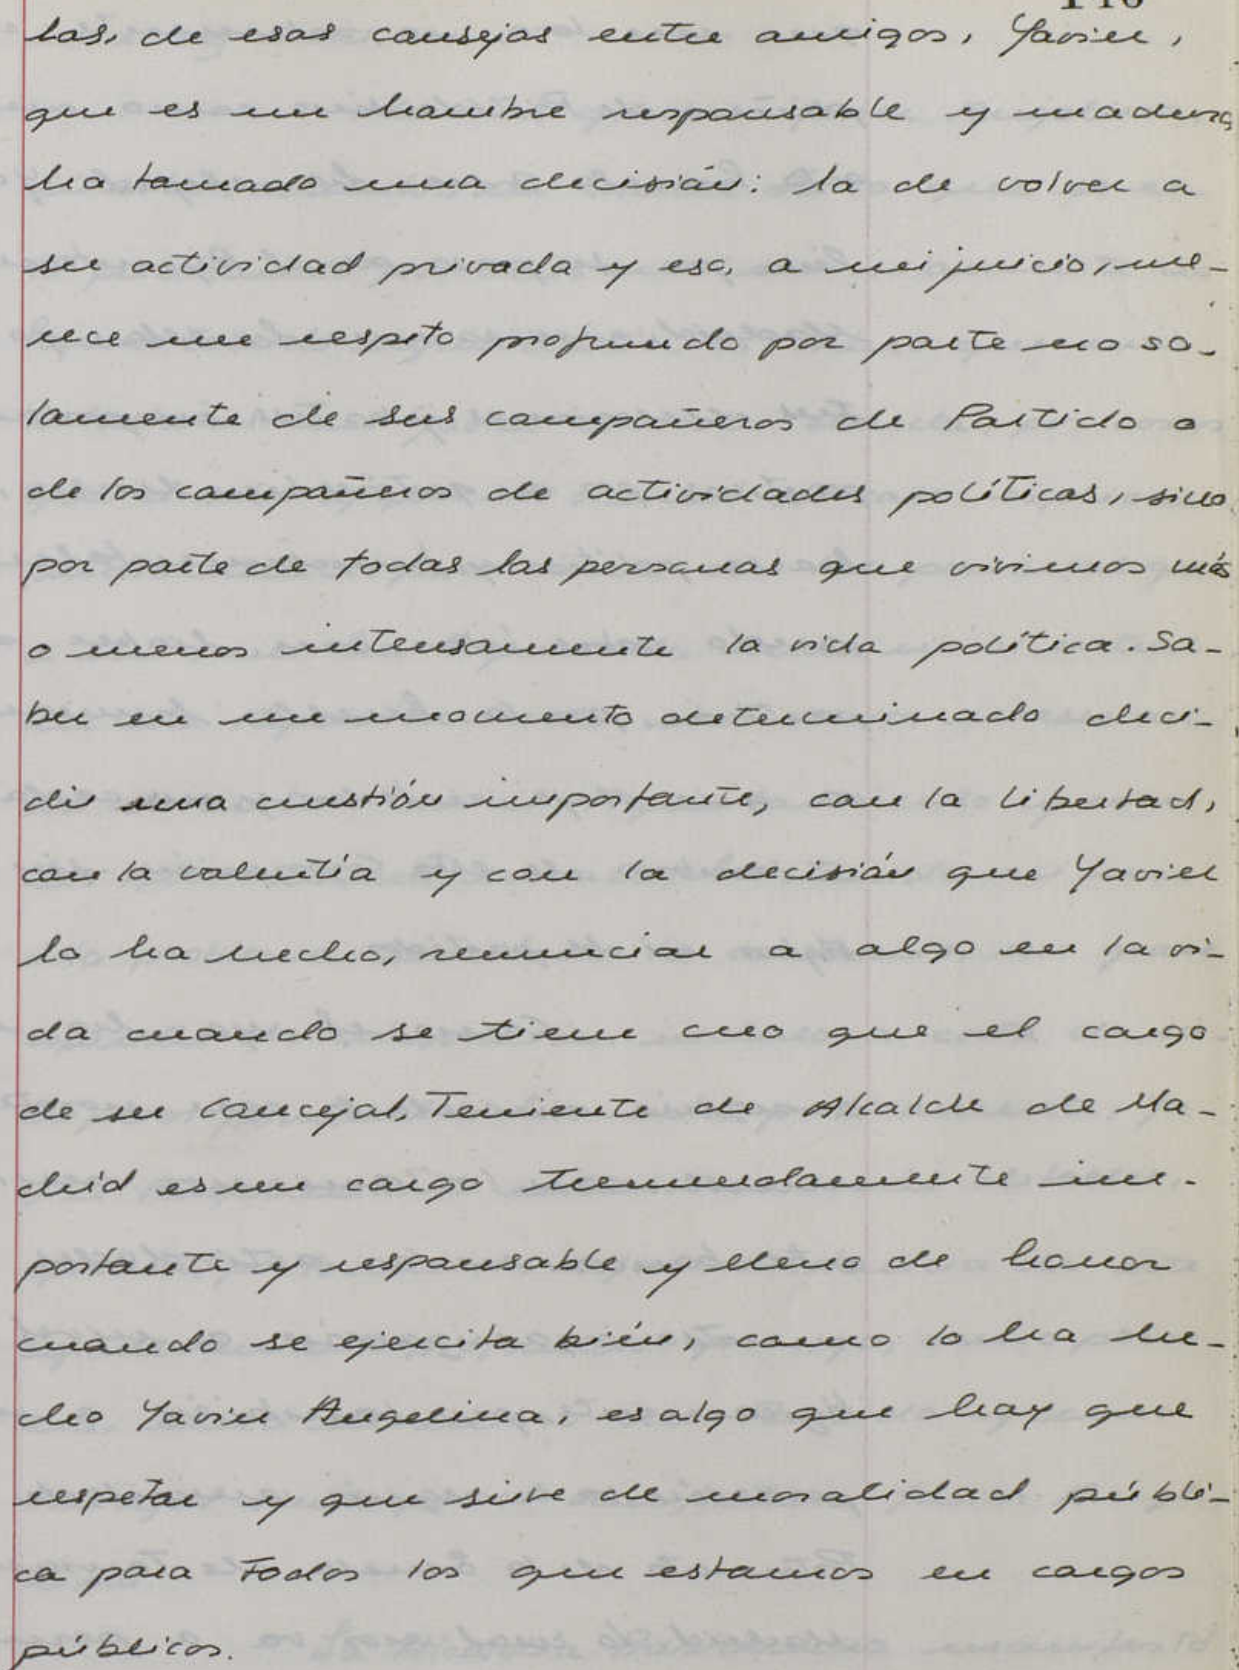 las, de esos consejos entre amigos, Javier,
que es un hombre responsable y maduro,
ha tomado una decisión: la de volver a
su actividad privada y eso, a mi juicio, me-
rece un respeto profundo por parte no so-
lamente de sus compañeros de Partido o
de los compañeros de actividades políticas, sino
por parte de todas las personas que vivimos más
o menos intensamente la vida política. Sa-
ber en un momento determinado deci-
dir una cuestión importante, con la libertad,
con la valentía y con la decisión que Javier
lo ha hecho, renunciar a algo en la vi-
da cuando se tiene creo que el cargo
de un Concejal, Teniente de Alcalde de Ma-
drid es un cargo tremendamente im-
portante y responsable y lleno de honor
cuando se ejercita bién, como lo ha he-
cho Javier Angelina, es algo que hay que
respetar y que sirve de moralidad públi-
ca para todos los que estamos en cargos
públicos.